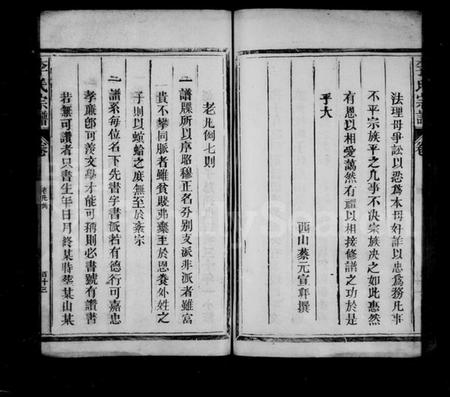 法理毋爭訟以忿為本毋奸詐以忠為務凡事
不平宗族平之几事不決宗族決之如此懇然
有恩以相愛藹然有禮以相接修譜之功於是
乎大
西山蔡元宣拜撰
李氏宗譜
老凡例七則
一譜牒所以序昭穆正名分別支派非派者雖富
貴不攀同脈者雖貧賤弗棄至於恩養外姓之
子則以螟蛉之庶無至於紊宗
一譜系每位名下先書字書派若有德行可嘉忠
孝廉節可羨文學才能可稱則必書號有讚書
若無可讚者只書生年日月終某時塟某山某
李氏宗譜 卷
老凡例